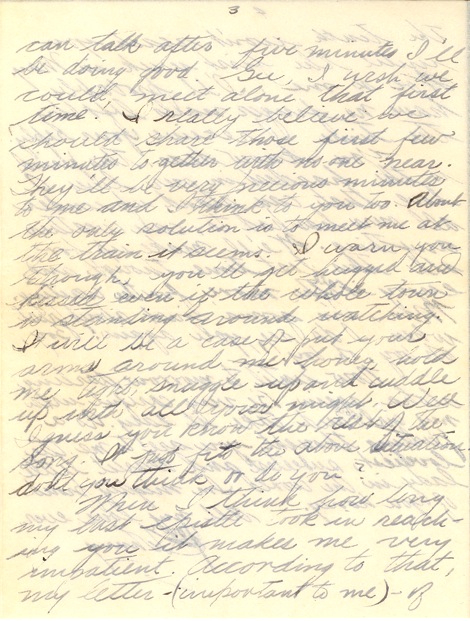 3
can talk after five minutes I'll
be doing good. Gee, I wish we
could, meet alone that first
time. I really believe we
should share those first few
minutes together with no one near.
They'll be very precious minutes
to me and I think to you too. About
the only solution is to meet me at
the train it seems. I warn you
though, you'll get hugged and
kissed even if the whole town
is standing around watching.
It will be a case of put your
arms around me honey hold
me tight, snuggle up and cuddle
up with all your might. Well
I guess you know the rest of the
song. It just fits the above situation
don't you think or do you?
When I think how long
my last epistle took in reach-
ing you it makes me very
impatient. According to that,
my letter - (important to me) - of